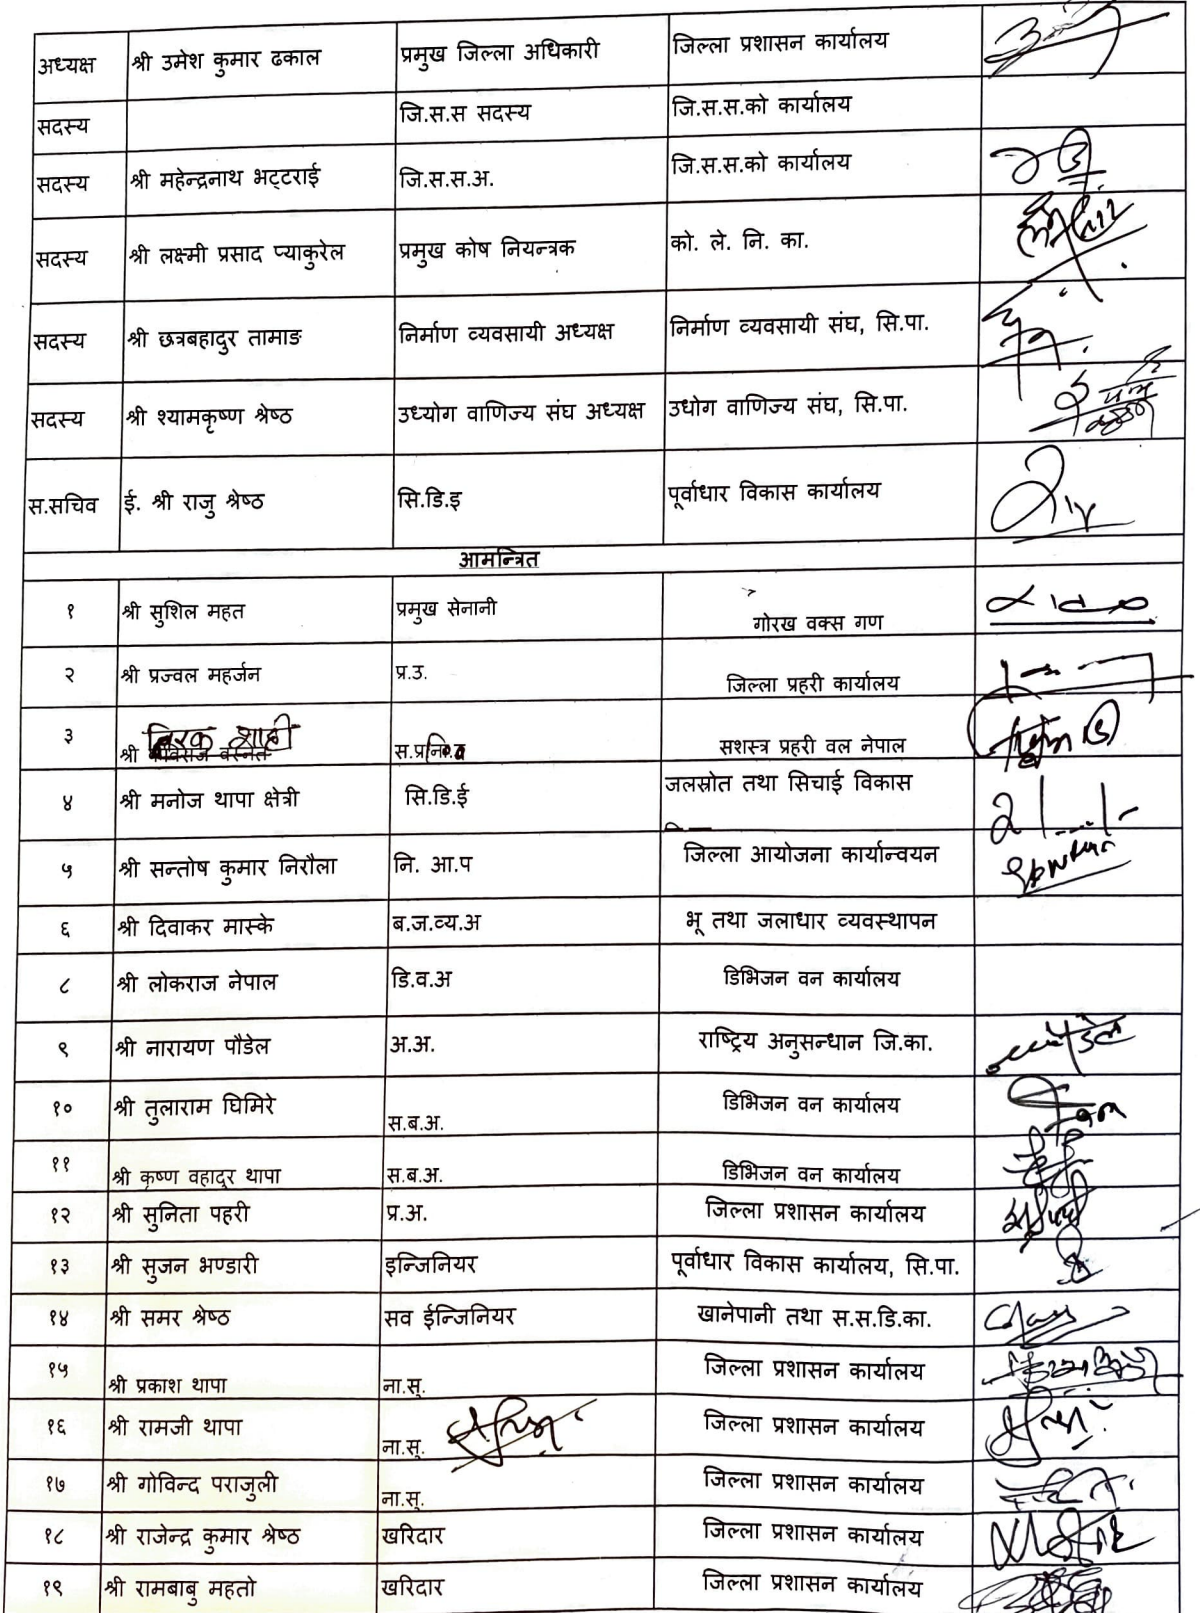 अध्यक्ष श्री उमेश कुमार ढकाल प्रमुख जिल्ला अधिकारी जिल्ला प्रशासन कार्यालय
सदस्य जि.स.स सदस्य जि.स.स.को कार्यालय
सदस्य श्री महेन्द्रनाथ भट्टराई जि.स.स.अ. जि.स.स.को कार्यालय
सदस्य श्री लक्ष्मी प्रसाद प्याकुरेल प्रमुख कोष नियन्त्रक को. ले. नि. का.
सदस्य श्री छत्रबहादुर तामाङ निर्माण व्यवसायी अध्यक्ष निर्माण व्यवसायी संघ, सि.पा.
सदस्य श्री श्यामकृष्ण श्रेष्ठ उध्योग वाणिज्य संघ अध्यक्ष उधोग वाणिज्य संघ, सि.पा.
स.सचिव ई. श्री राजु श्रेष्ठ सि.डि.इ पूर्वाधार विकास कार्यालय
आमन्त्रित
१ श्री सुशिल महत प्रमुख सेनानी गोरख वक्स गण
२ श्री प्रज्वल महर्जन प्र.उ. जिल्ला प्रहरी कार्यालय
३ श्री शाही सशस्त्र प्रहरी वल नेपाल
४ श्री मनोज थापा क्षेत्री सि.डि.ई जलस्रोत तथा सिचाई विकास
५ श्री सन्तोष कुमार निरौला नि. आ.प जिल्ला आयोजना कार्यान्वयन
६ श्री दिवाकर मास्के ब.ज.व्य.अ भू तथा जलाधार व्यवस्थापन
८ श्री लोकराज नेपाल डि.व.अ डिभिजन वन कार्यालय
९ श्री नारायण पौडेल अ.अ. राष्ट्रिय अनुसन्धान जि.का.
१० श्री तुलाराम घिमिरे स.ब.अ. डिभिजन वन कार्यालय
११ श्री कृष्ण वहादुर थापा स.ब.अ. डिभिजन वन कार्यालय
१२ श्री सुनिता पहरी प्र.अ. जिल्ला प्रशासन कार्यालय
१३ श्री सुजन भण्डारी इन्जिनियर पूर्वाधार विकास कार्यालय, सि.पा.
१४ श्री समर श्रेष्ठ सव ईन्जिनियर खानेपानी तथा स.स.डि.का.
१५ श्री प्रकाश थापा ना.सु. जिल्ला प्रशासन कार्यालय
१६ श्री रामजी थापा ना.सु. जिल्ला प्रशासन कार्यालय
१७ श्री गोविन्द पराजुली ना.सु. जिल्ला प्रशासन कार्यालय
१८ श्री राजेन्द्र कुमार श्रेष्ठ खरिदार जिल्ला प्रशासन कार्यालय
१९ श्री रामबाबु महतो खरिदार जिल्ला प्रशासन कार्यालय